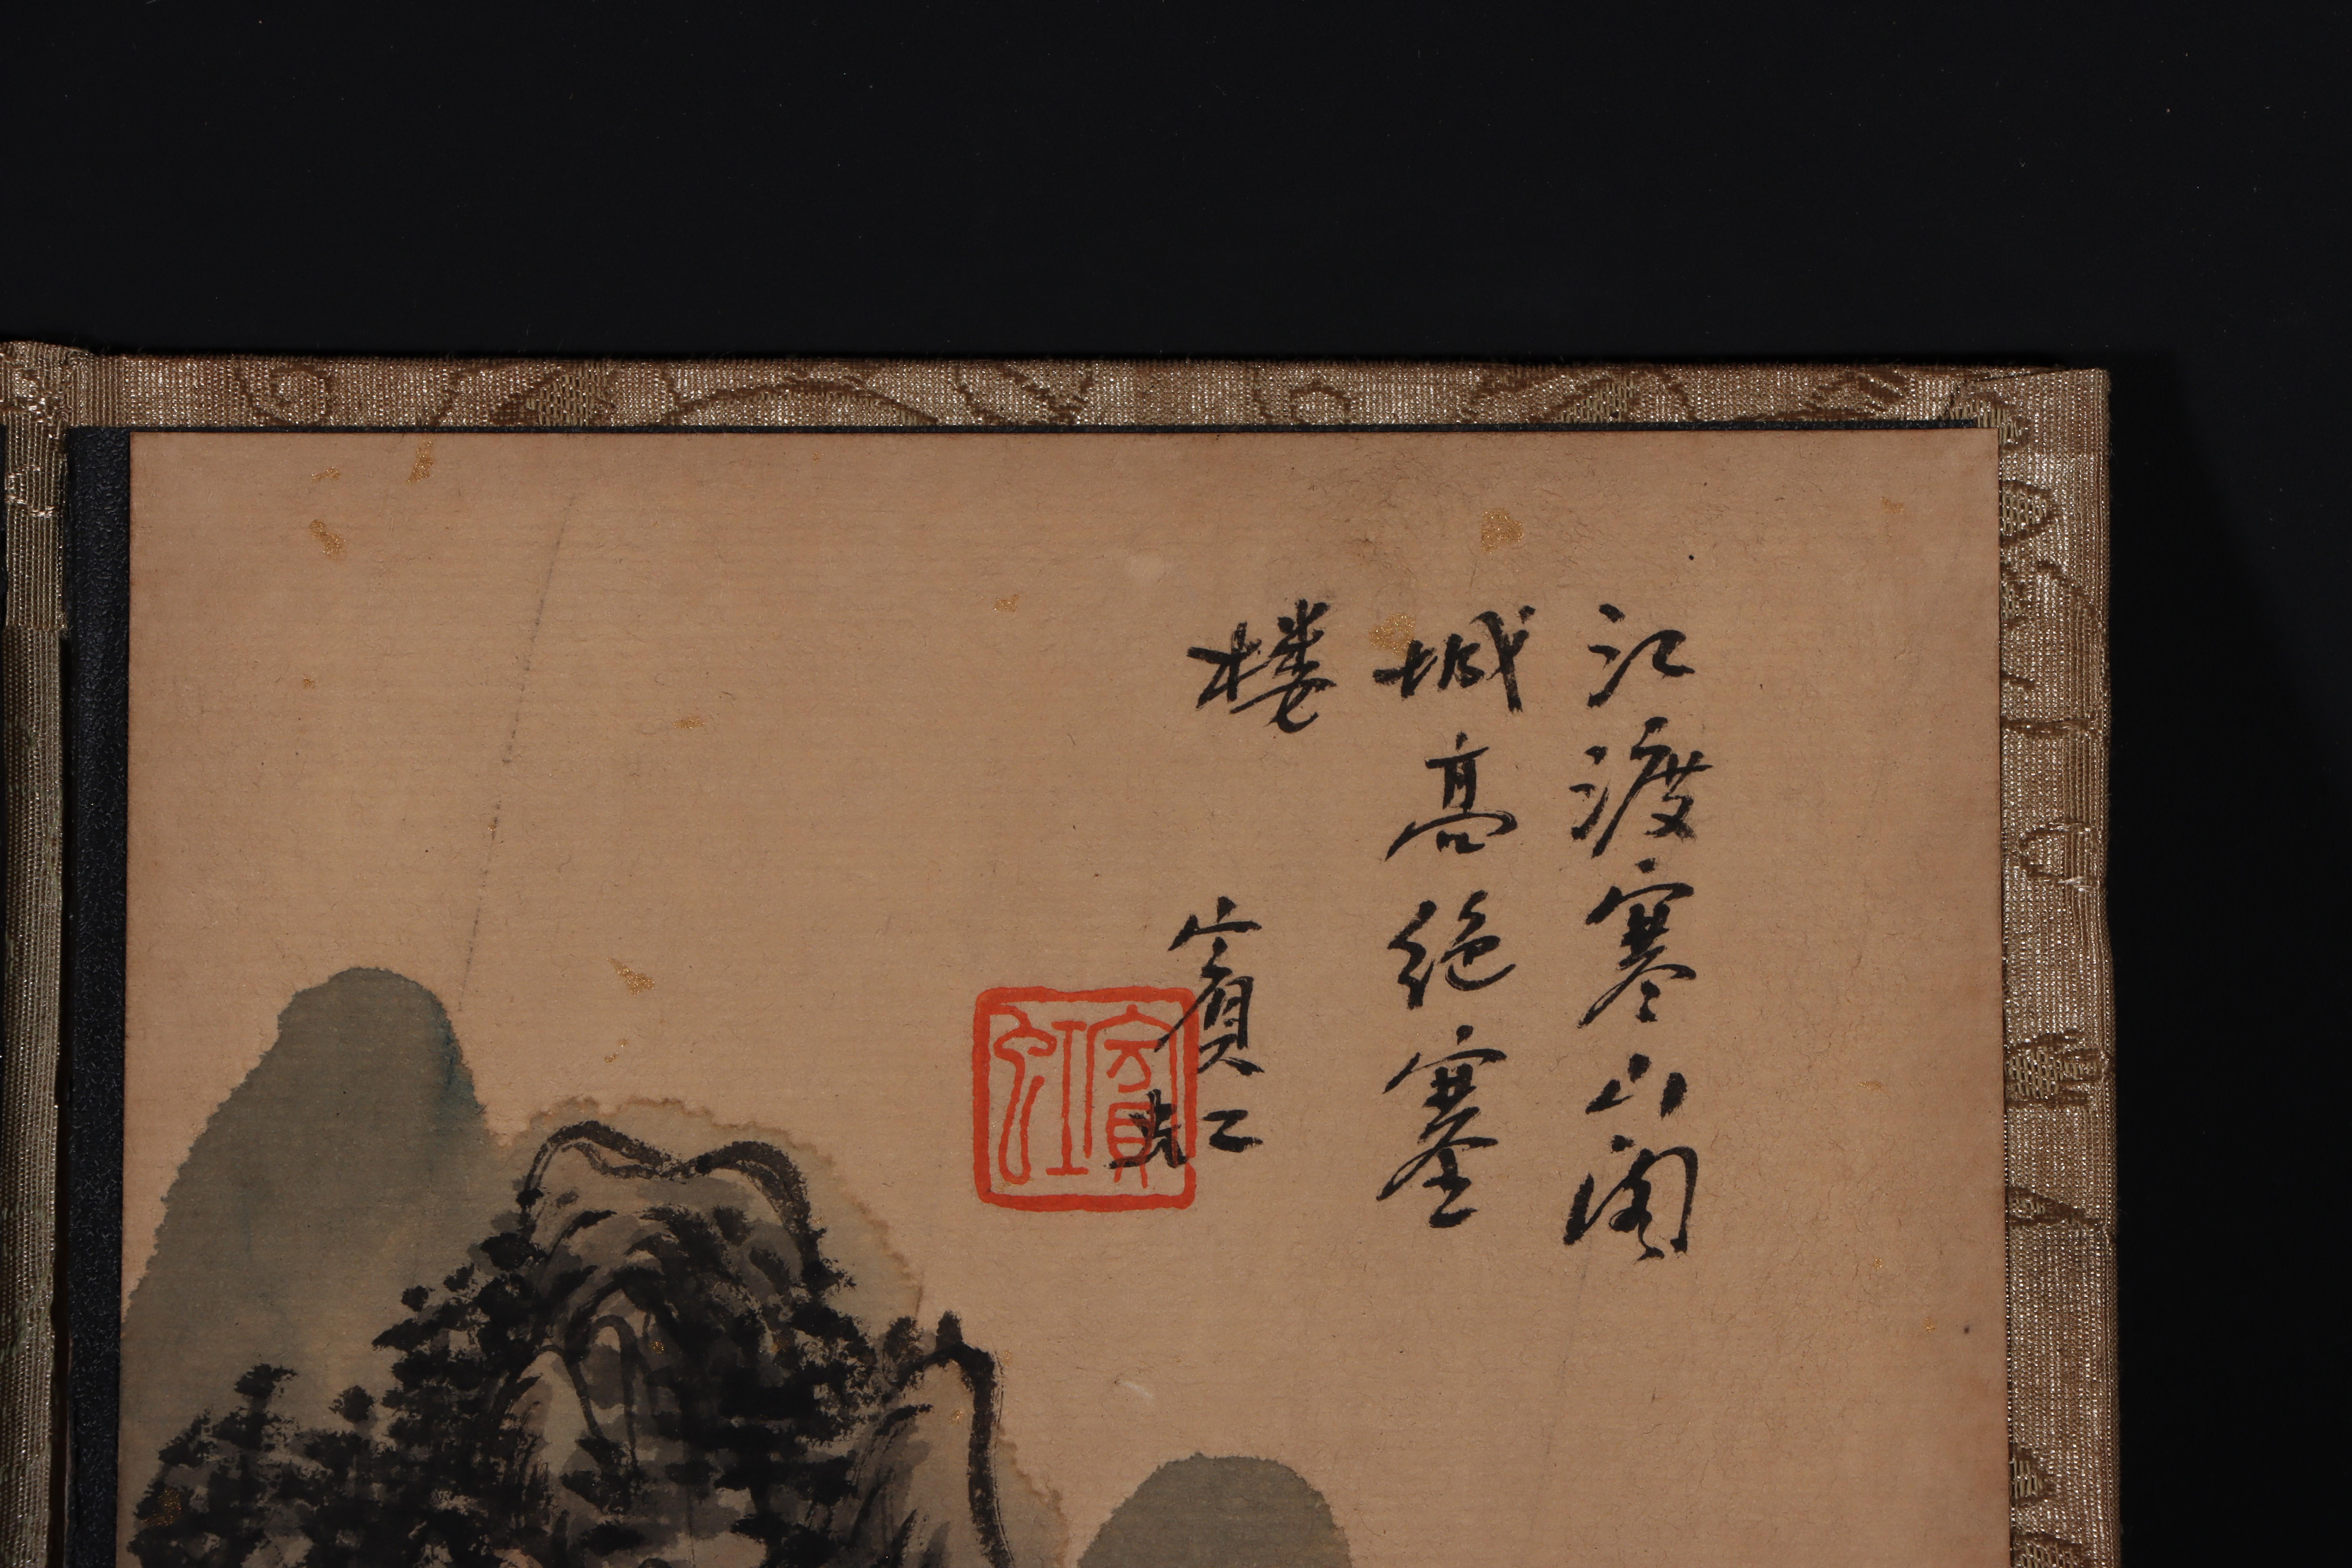 江渡寒山阁
城高绝塞
楼
賓虹
賓虹